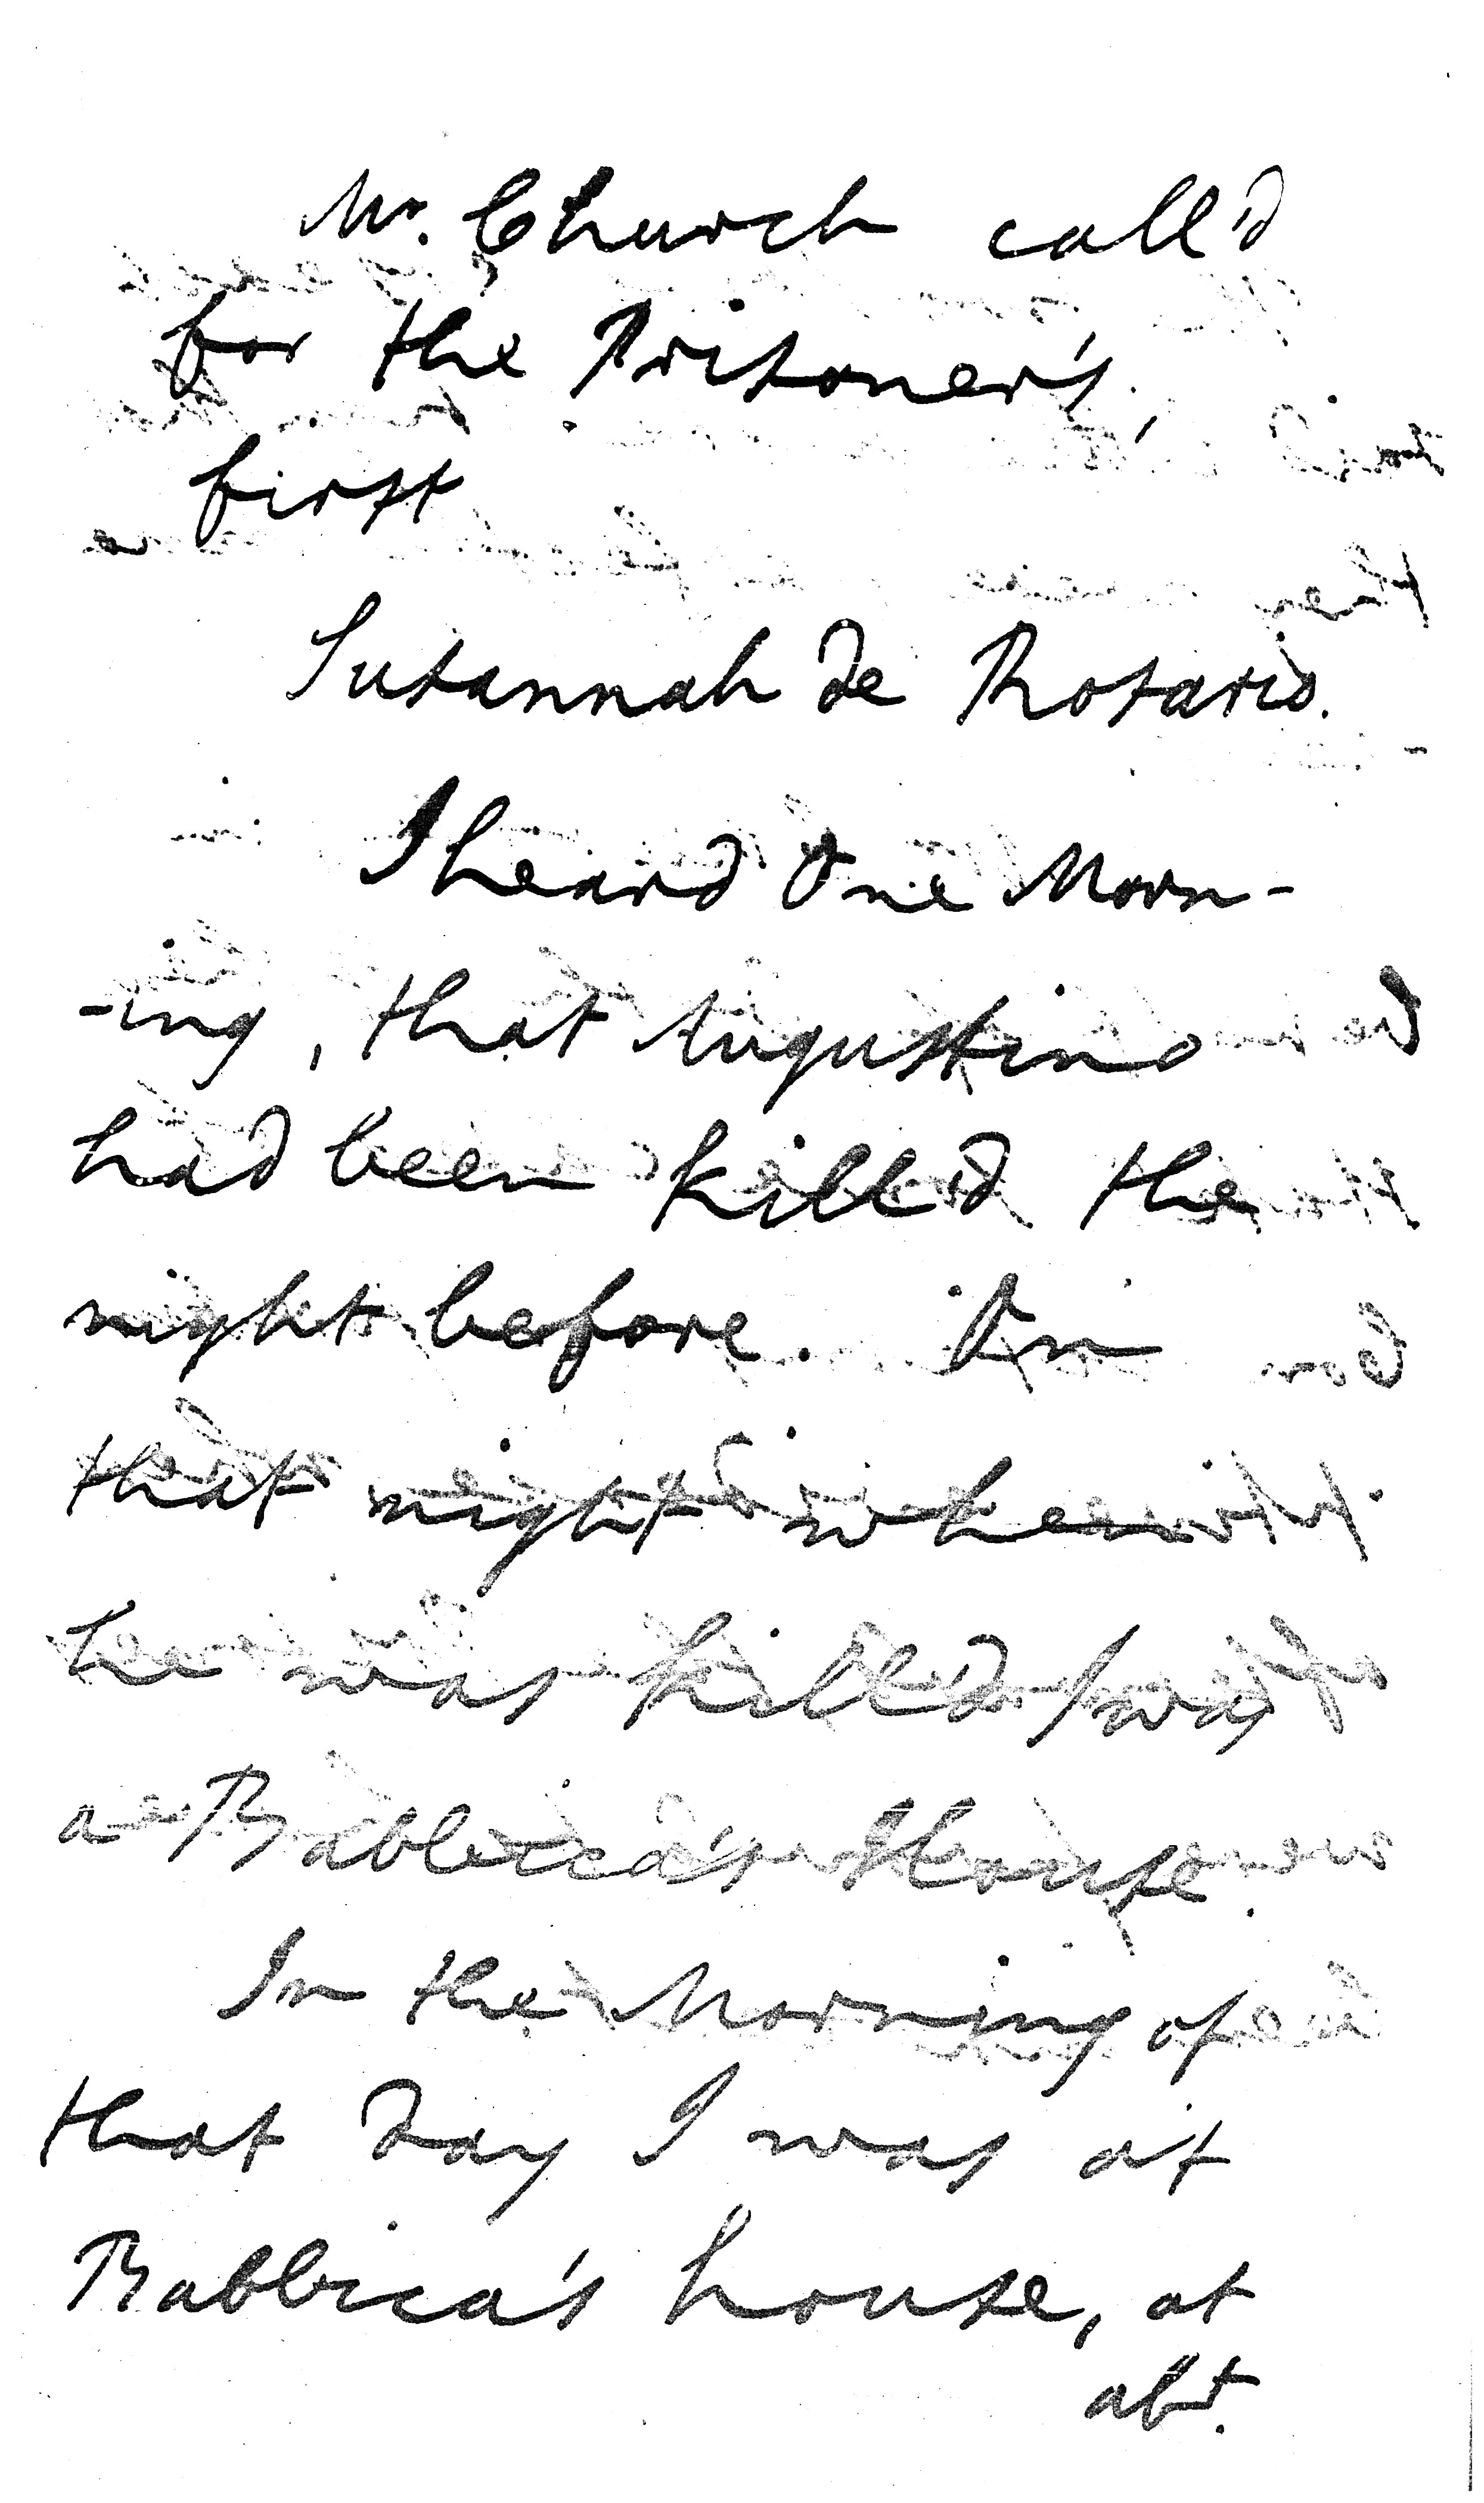 Mr. Church call'd
for the Prisoner's,
first
Susannah De Rosario.
I heard One Morn-
-ing, that Augustino
had been kill'd the
night before. On
that night when
he was kill'd I was
a Bablica's House.
In the Morning of
that Day I was at
Babbica's house, at
abt.